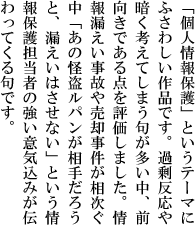 「個人情報保護」というテーマに
ふさわしい作品です。過剰反応や
暗く考えてしまう句が多い中、前
向きである点を評価しました。情
報漏えい事故や売却事件が相次ぐ
中「あの怪盗ルパンが相手だろう
と、漏えいはさせない」という情
報保護担当者の強い意気込みが伝
わってくる句です。